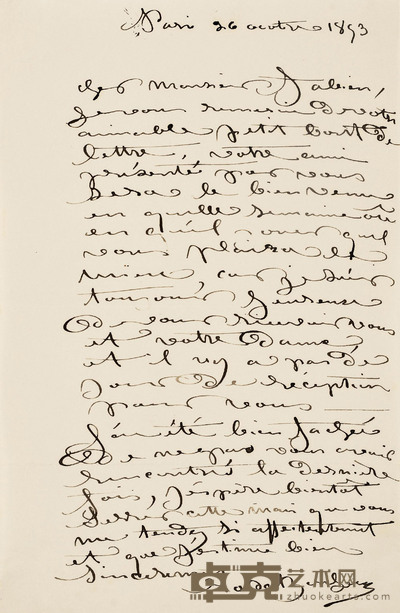 Paris 26 octobre 1893
cher Monsieur Fabien,
je vous remercie de votre
aimable petit bout de
lettre, votre ami
présenté par vous
sera le bien venu
en quelle semaine ou
en quel jour quil
vous plaira le
mieux, car je suis
toujours heureuse
de vous recevoir vous
et votre dame,
et il ny a pas de
jour de réception
pour vous
J'ai été bien fachée
de ne pas vous avoir
rencontré la dernière
fois, j'espère bientôt
serrer cette main que vous
me tendez si affectueusement
et que j'estime bien
sincèrement
卓克艺术网
www.zhuokearts.com